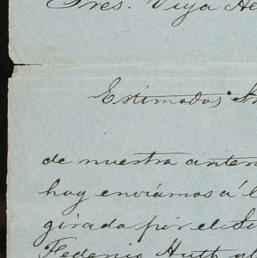 Sres. Viya He
Estimados S
de nuestra anter
hoy enviamos á l
girado por el S
Federico Huth